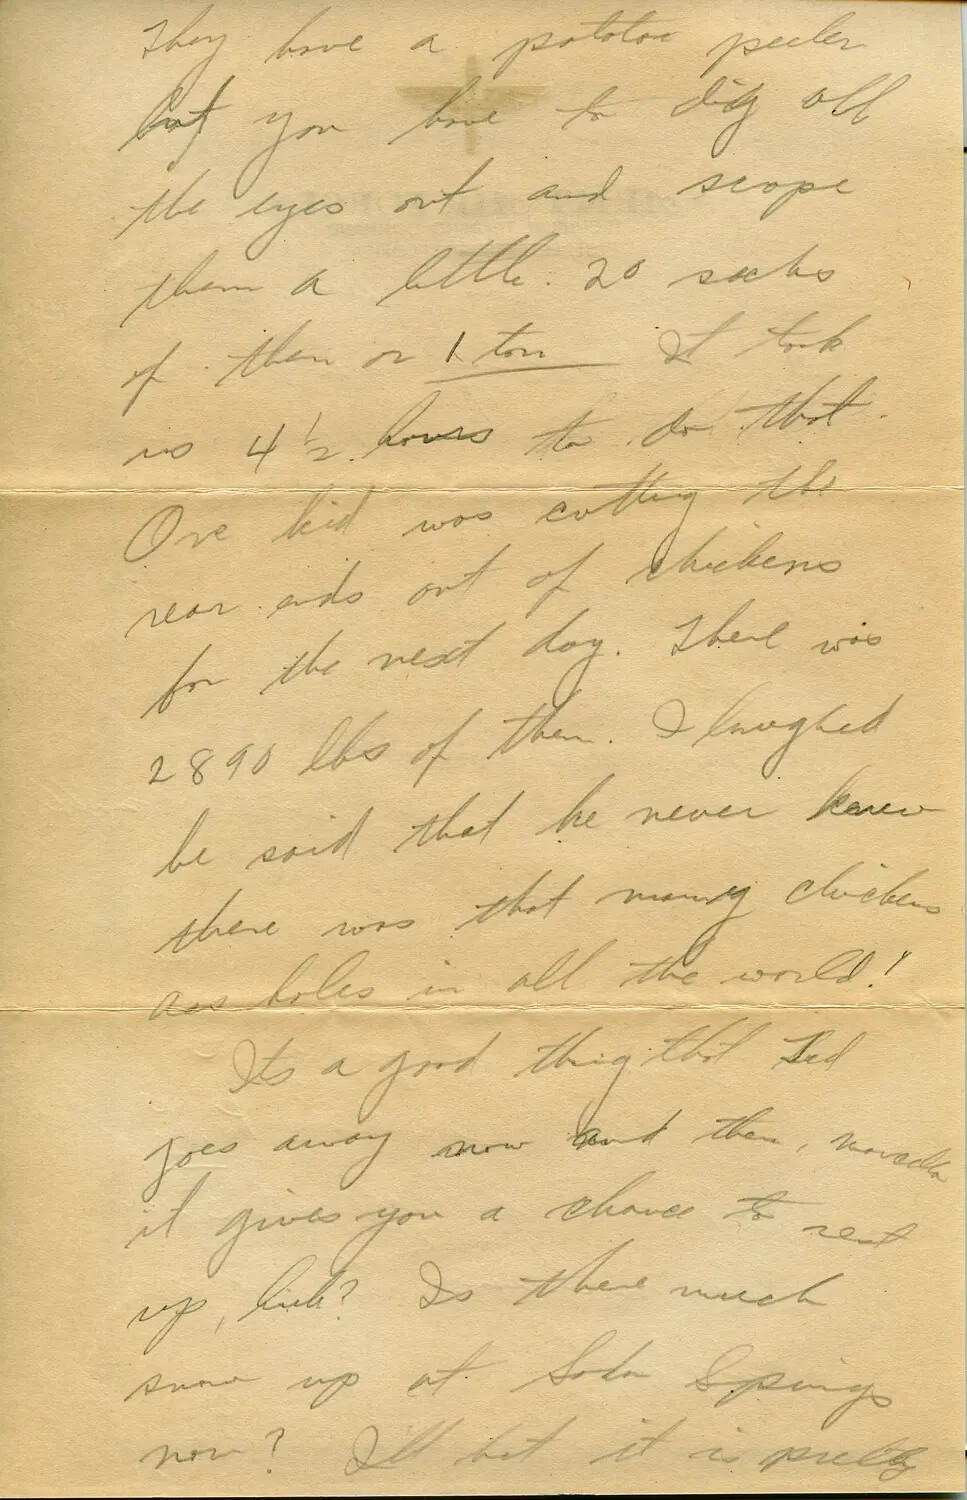 They have a potatoe peeler
but you have to dig all
the eyes out and scrape
them a little. 20 sacks
of them or 1 ton It took
us 4 1/2 hours to do that.
One kid was cutting the
rear ends out of chickens
for the next day. There was
2890 lbs of them. I laughed
he said that he never knew
there was that many chickens
ass holes in all the world!
Its a good thing that Ted
goes away now and then,
it gives you a chance to rest
up, huh? Is there much
snow up at Soda Springs
now? I'll bet it is pretty